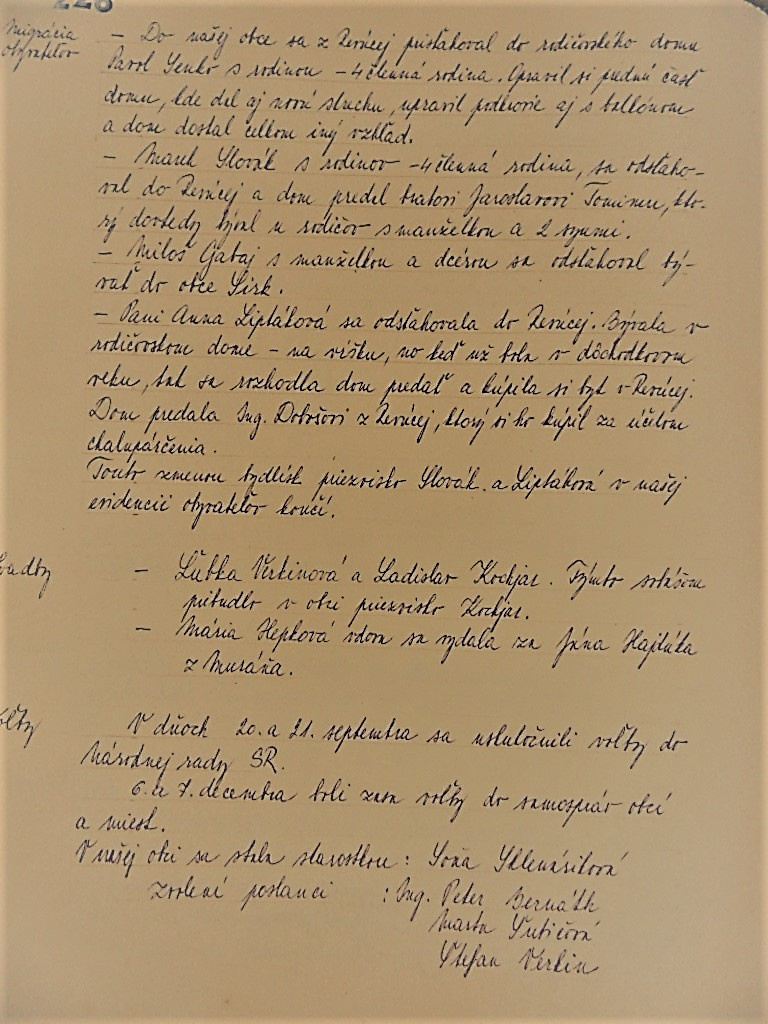 228
Migrácia
obyvateľov
– Do našej obce sa z Revúcej prisťahoval do rodičovského domu
Pavol Senko s rodinou – 4 členná rodina. Opravil si prednú časť
domu, kde dal aj novú strechu, upravil podkrovie aj s balkónom
a dom dostal celkom iný vzhľad.
– Marek Slovák s rodinov – 4 členná rodina, sa odsťaho-
val do Revúcej a dom predal bratovi Jaroslavovi Tominovi, kto-
rý dovtedy býval u rodičov s manželkou a 2 synmi.
– Miloš Gabaj s manželkou a dcérou sa odsťahoval bý-
vať do obce Sirk.
– Pani Anna Liptáková sa odsťahovala do Revúcej. Bývala v
rodičovskom dome – na víšku, no keď už bola v dôchodkovom
veku, tak sa rozhodla dom predať a kúpila si byt v Revúcej.
Dom predala Ing. Dobošovi z Revúcej, ktorý si ho kúpil za účelom
chalupárčenia.
Touto zmenou bydlísk priezvisko Slovák a Liptáková v našej
evidencií obyvateľov končí.
Svadby
– Ľubka Verkinová a Ladislav Kochjar. Týmto sobášom
pribudlo v obci priezvisko Kochjar.
– Mária Hepková vdova sa vydala za Jána Hajdúka
z Muráňa.
Voľby
V dňoch 20. a 21. septembra sa uskutočnili voľby do
Národnej rady SR.
6. a 7. decembra boli zasa voľby do samospráv obcí
a miest.
V našej obci sa stala starostkou: Soňa Sklenáriková
Zvolení poslanci : Ing. Peter Bernáth
Marta Šutičová
Štefan Verkin